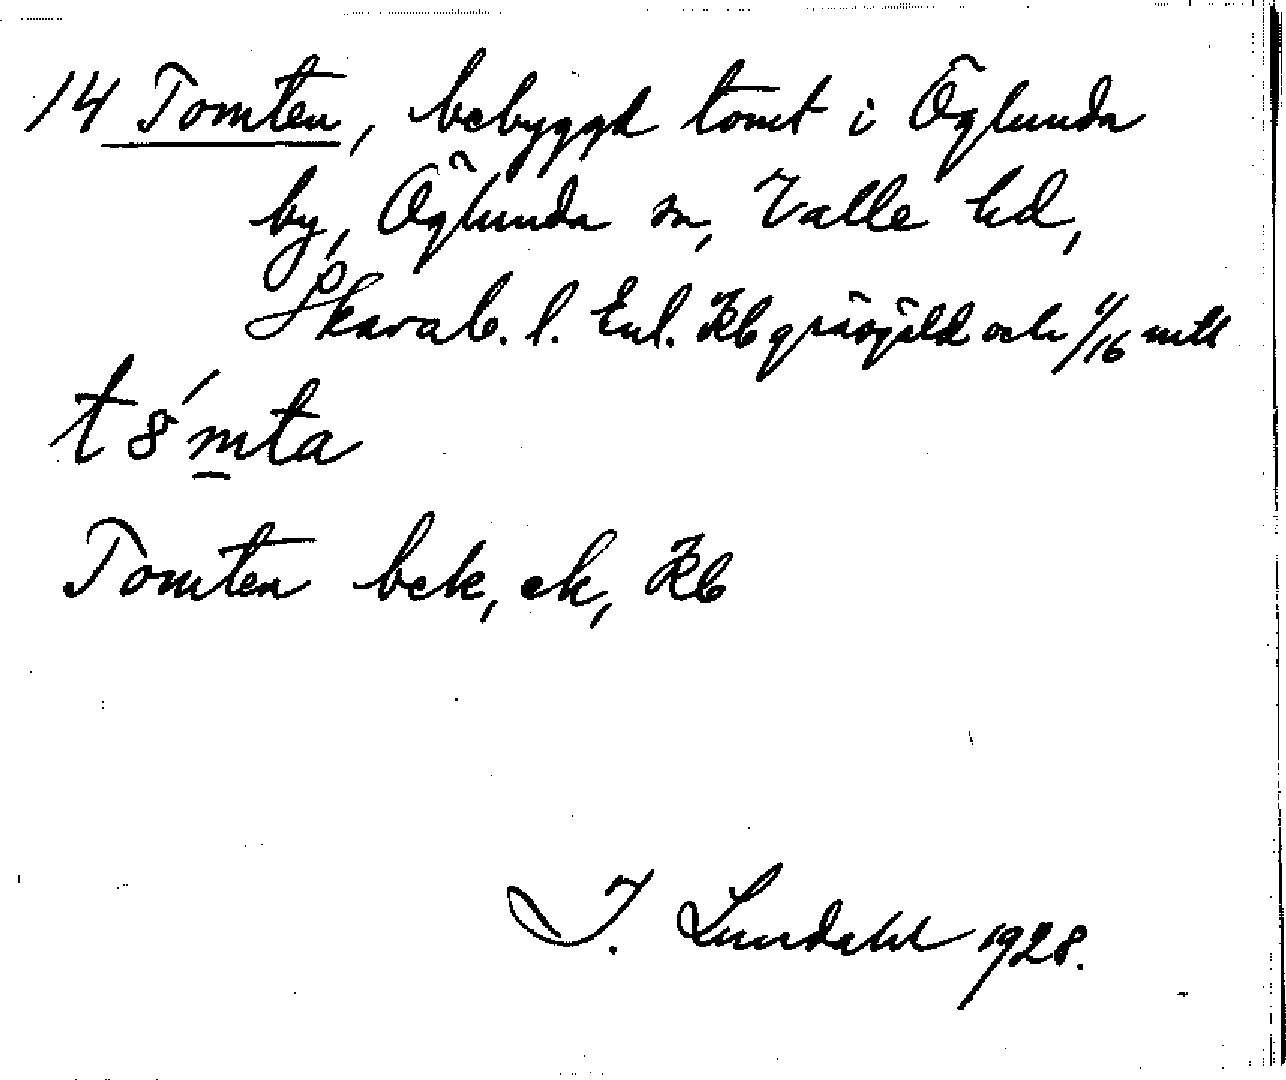 14 Tomten, bebyggd tomt i Öglunda
by, Öglunda sn, Valle hd,
Skarab. l. Enl. Kb gräsgäld och 1/16 mtl
t8´mta
Tomten bek, ek, Kb
I. Lundahl 1928.